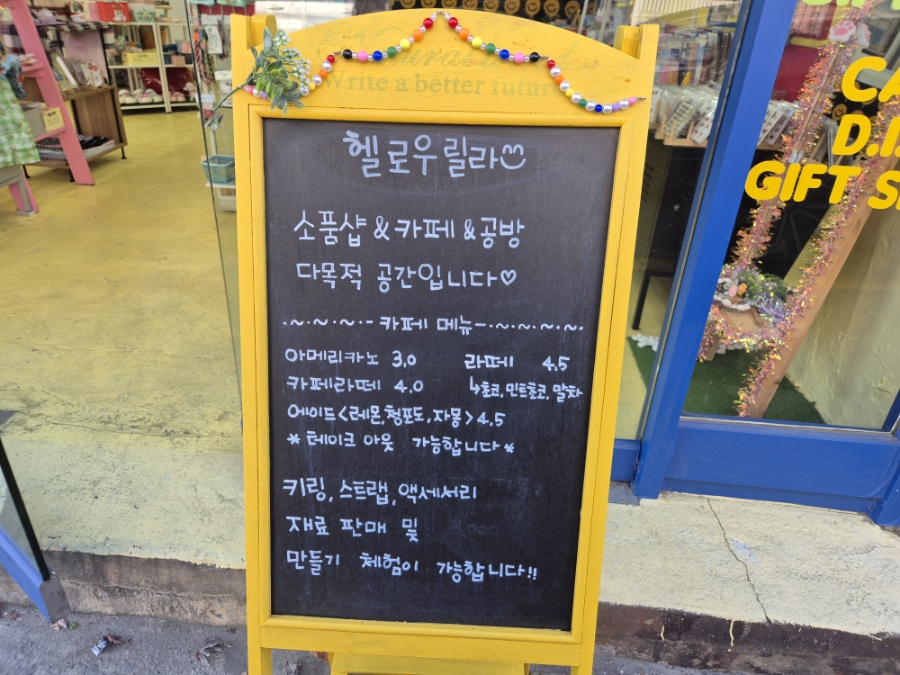 Write a better future
헬로우릴라
소품샵 & 카페 & 공방
다목적 공간입니다♡
·~·~·~·- 카페 메뉴-·~·~·~·~·
아메리카노 3.0 라떼 4.5
카페라떼 4.0 ↳초코, 민트초코, 말차
에이드<레몬,청포도,자몽>4.5
*테이크 아웃 가능합니다*
키링, 스트랩, 액세서리
재료 판매 및
만들기 체험이 가능합니다!!
D.I.
GIFT